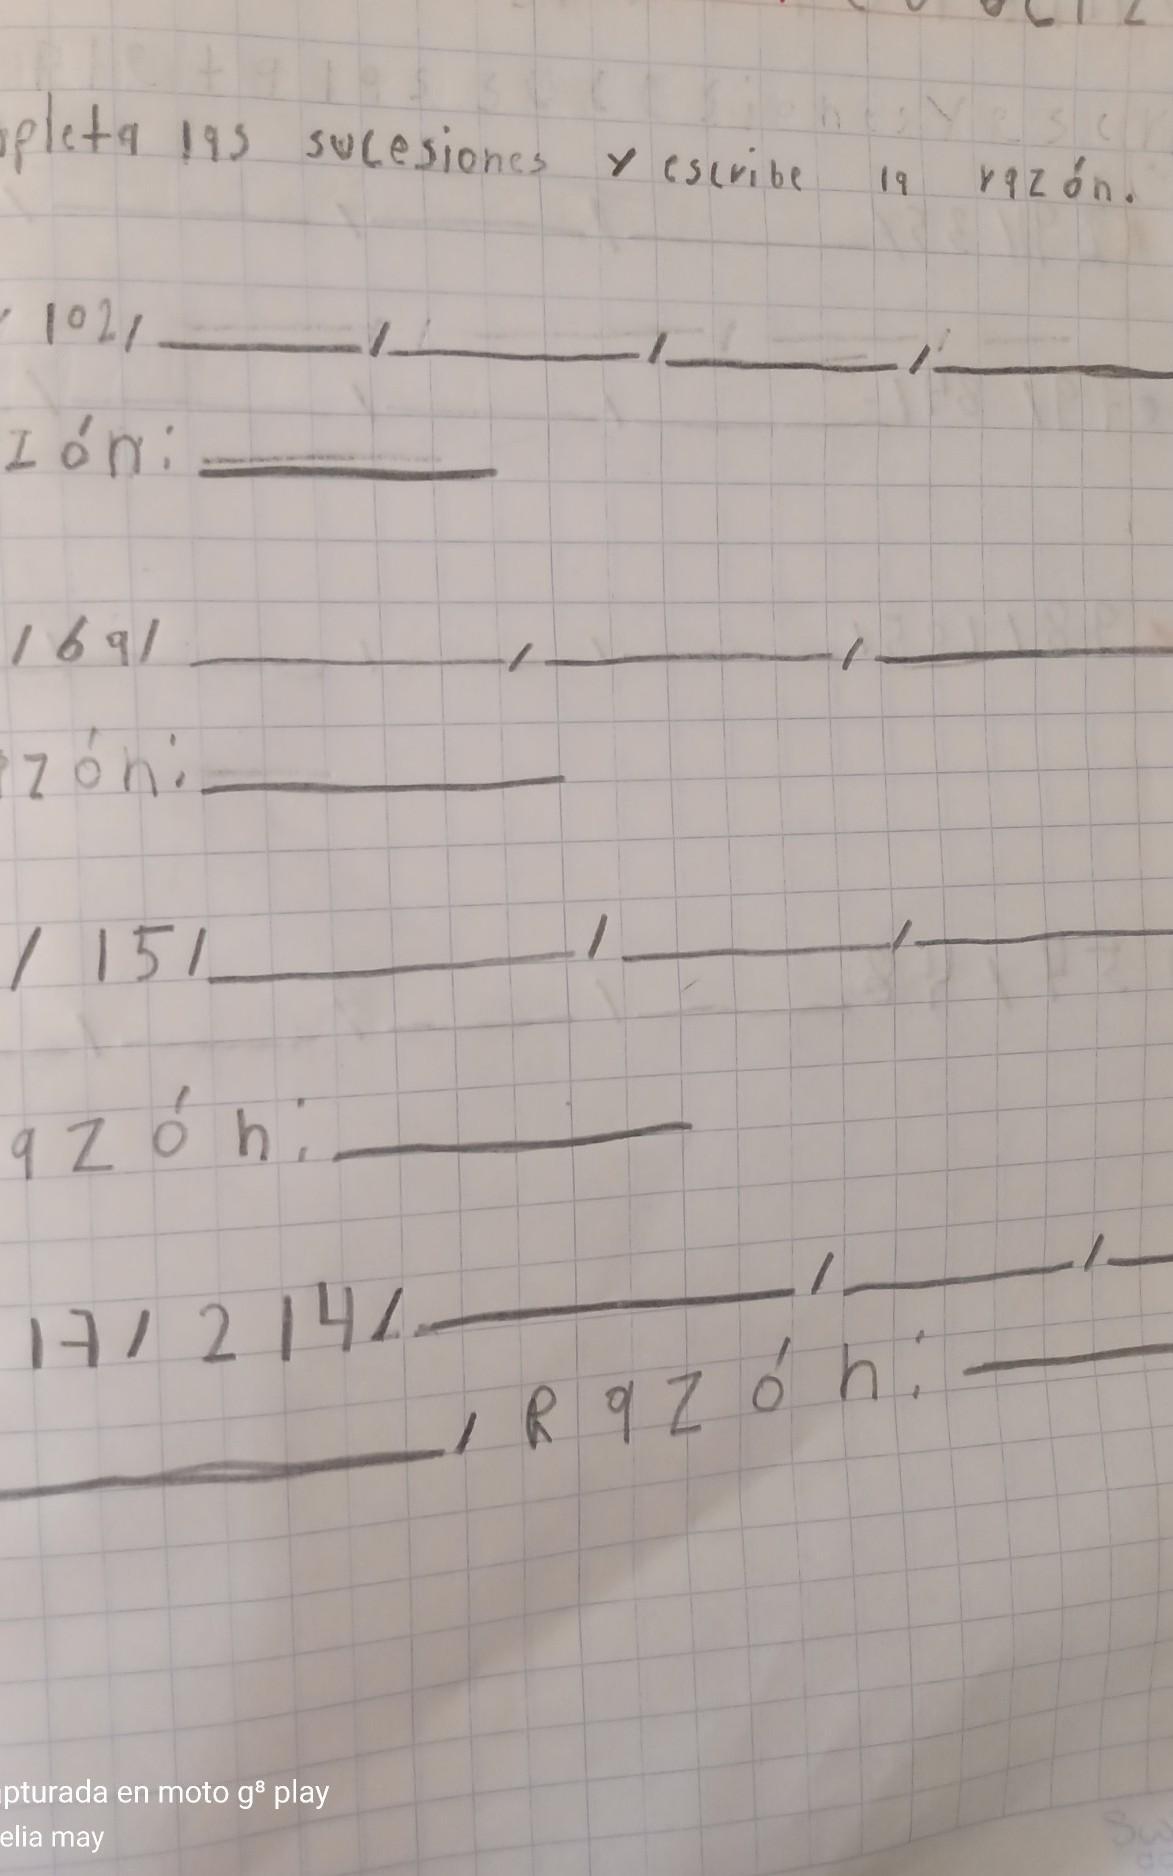 pleta las sucesiones y escribe la razón.
102, ____, ____, ____, ____
zón: ____
169, ____, ____, ____
zón: ____
, 151, ____, ____, ____
azón: ____
17, 214, ____, ____, __
____, Razón: ____
apturada en moto g⁸ play
elia may